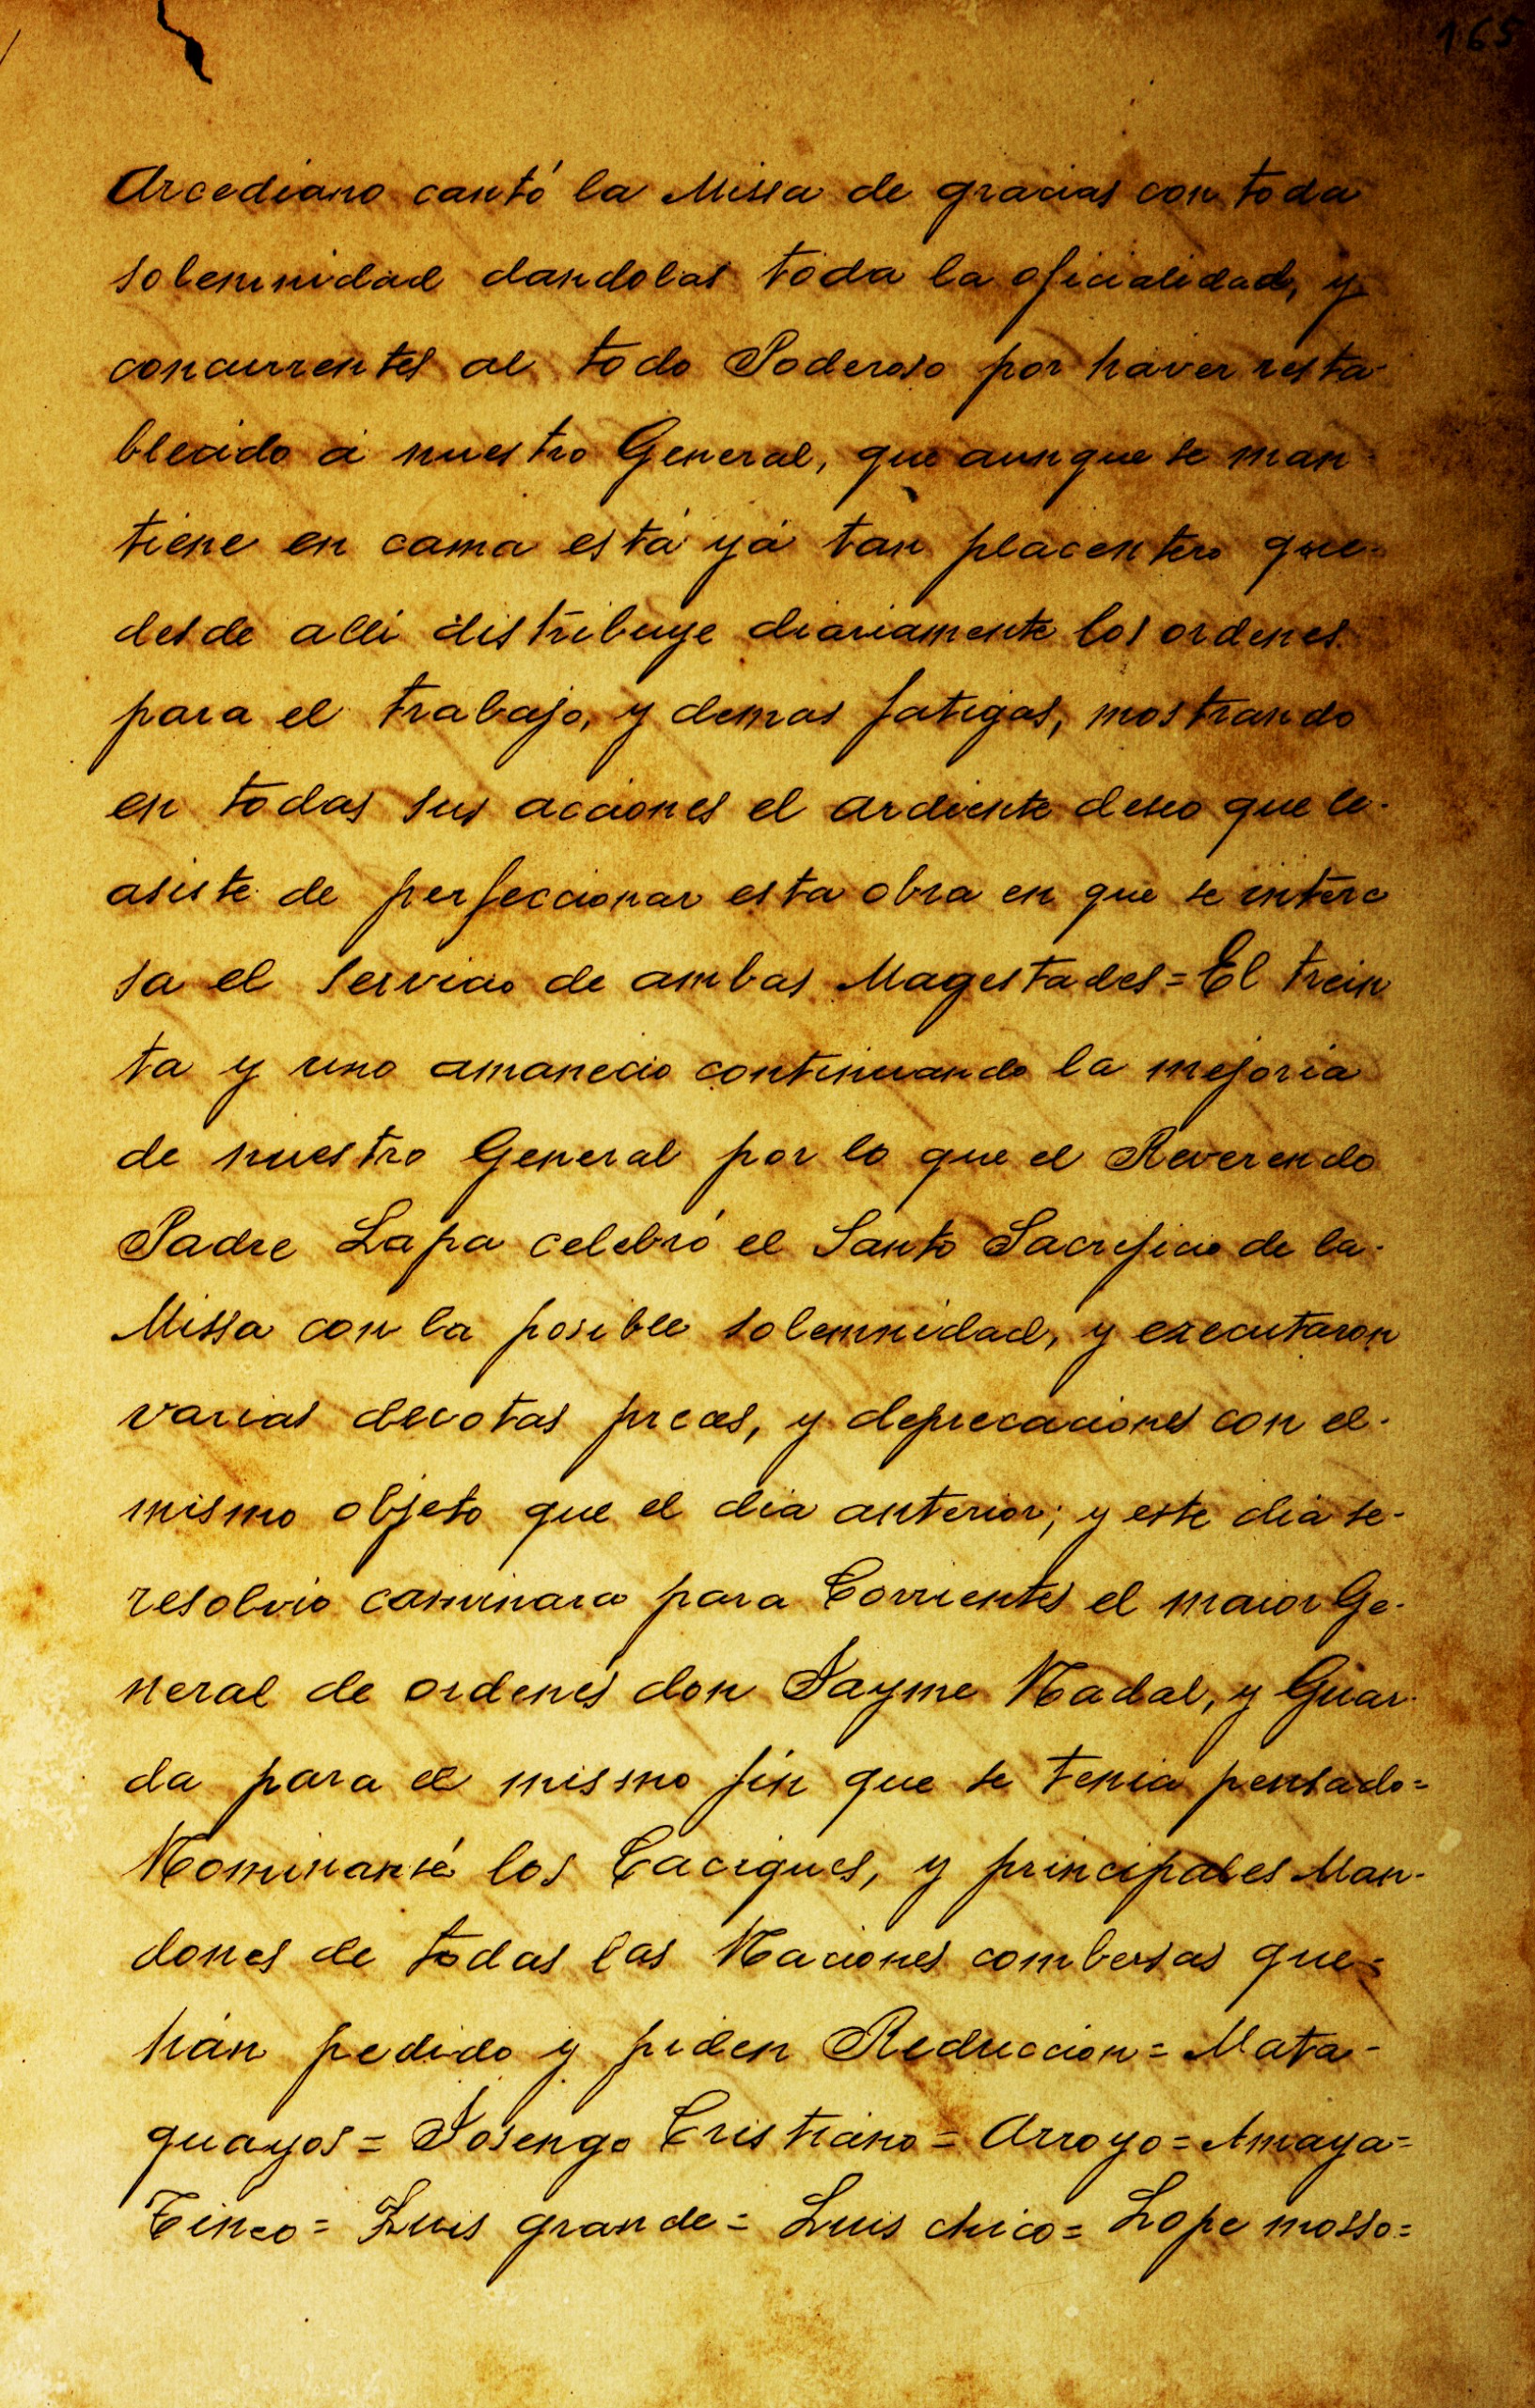 165
Arcediano cantó la Missa de gracias con toda
solemnidad dandolas toda la oficialidad, y
concurrentes al todo Poderoso por haver resta-
blecido á nuestro General, que aunque se man-
tiene en cama está yá tan placentero que-
desde alli distribuye diariamente los ordenes
para el trabajo, y demas fatigas, mostrando
en todas sus acciones el ardiente deseo que le-
asiste de perfeccionar esta obra en que se intere
sa el servicio de ambas Magestades = El trein
ta y uno amanecio continuando la mejoria
de nuestro General por lo que el Reverendo
Padre Lapa celebró el Santo Sacrificio de la-
Missa con la posible solemnidad, y executaron
varias devotas preces, y deprecaciones con el-
mismo objeto que el dia anterior; y este dia se-
resolvio caminara para Corrientes el maior Ge-
neral de ordenes don Jayme Nadal, y Guar-
da para el mismo fin que se tenia pensado =
Nominansé los Caciques, y principales Man-
dones de todas las Naciones combersas que =
hán pedido y piden Reduccion = Mata-
guayos = Josengo Cristiano = Arroyo = Amaya =
Tineo = Luis grande = Luis chico = Lope mosso =